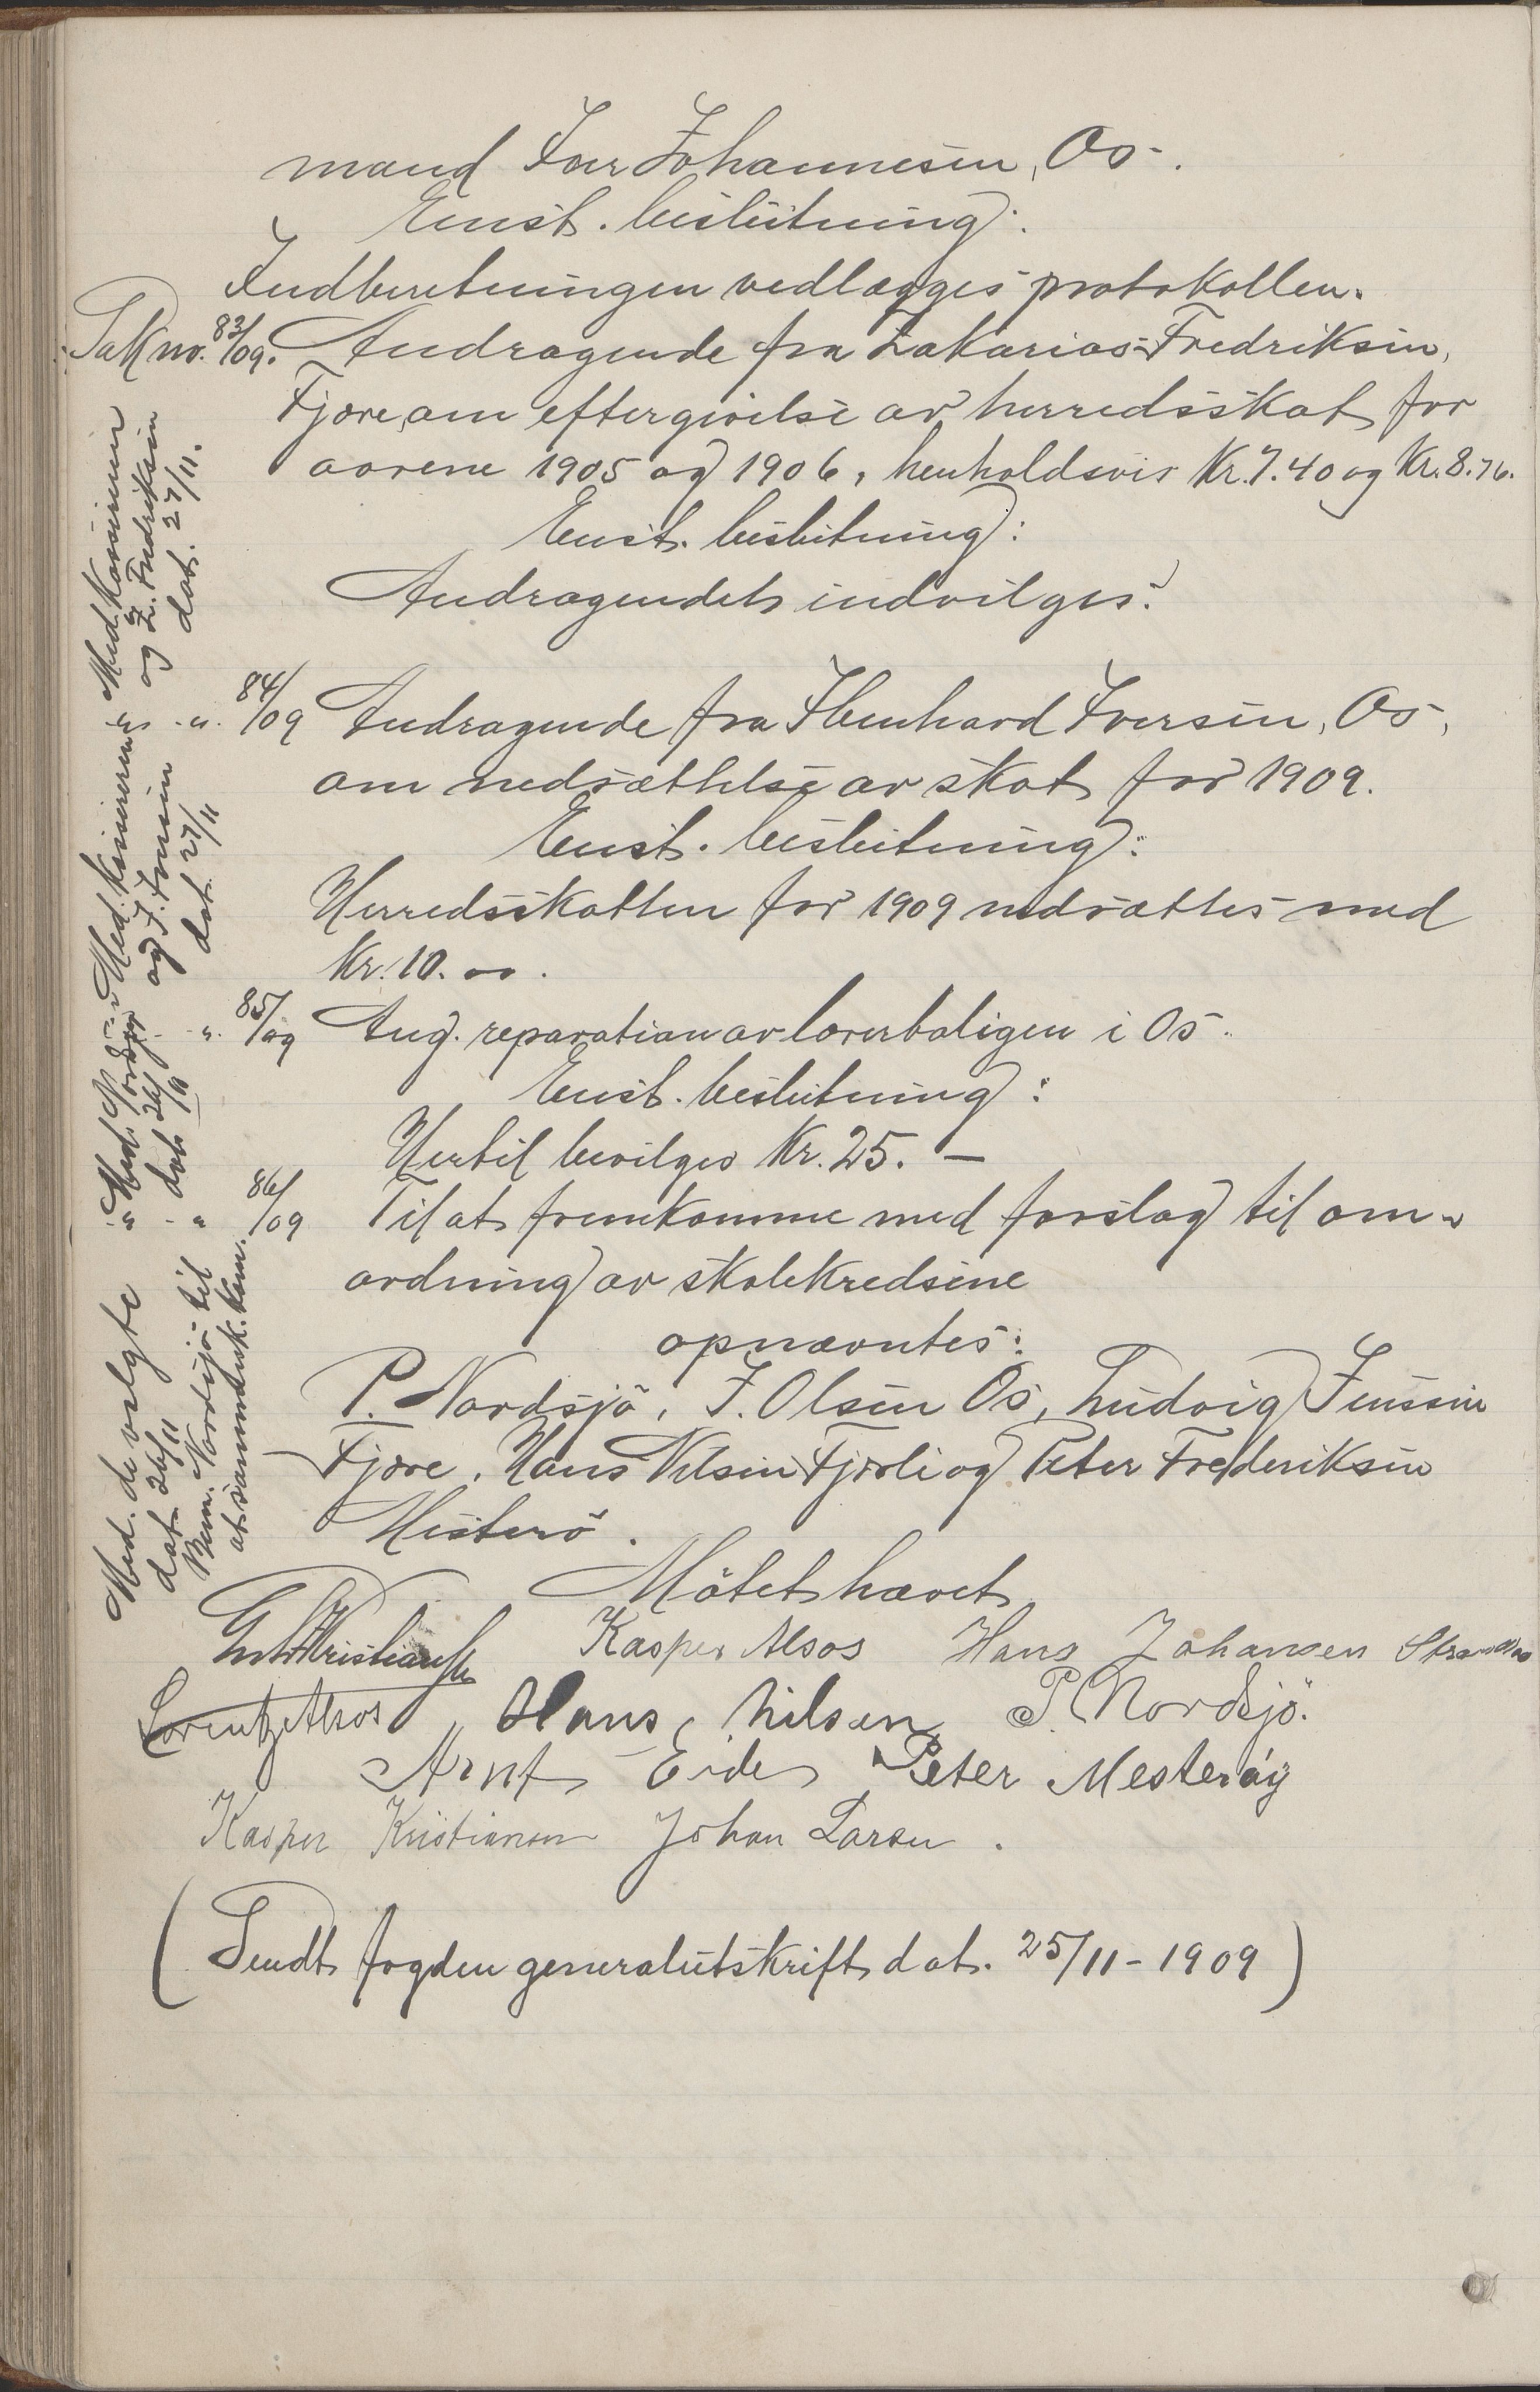 mand Iver Johannesen, Os.
Enst. beslutning:
Indberetningen vedlægges protokollen.
Sak no. 83/09. Andragende fra Zakarias Fredriksen,
Fjære, om eftergivelse av herredsskat for
aarene 1905 og 1906, henholdsvis Kr. 7.40 og Kr. 8.76.
Enst. beslutning:
Andragendet indvilges.
" " 84/09 Andragende fra Ebenhard Iversen, Os,
om nedsættelse av skat for 1909.
Enst. beslutning:
Herredsskatten for 1909 nedsættes med
Kr. 10.00.
" " 85/09 Ang. reparation av lærerboligen i Os.
Enst. beslutning:
Hertil bevilges Kr. 25. —
" " 86/09 Til at fremkomme med forslag til om-
ordning av skolekredsene
opnævntes:
P. Nordsjö, J. Olsen Os, Ludvig Jenssen
Fjære, Hans Nilsen Fjærli og Peter Frederiksen
Mesterö.
Mötet hævet
Kristiansen Kasper Alsos Hans Johansen
Lorentz Alsos Hans Nilsen P. Nordsjö.
Arnt Eide Peter Mesteröy
Kasper Kristiansen Johan Larsen.
(Sendt fogden generalutskrift dat. 25/11-1909)
Med. Kasereren
og Z. Fredriksen
dat. 27/11.
Med. kasereren
og E. Iversen
dat. 27/11
Med. Nordsjö
dat. 26/11
Med. de valgte
dat. 26/11
Bem. Nordsjö til
at sammenk. kom.